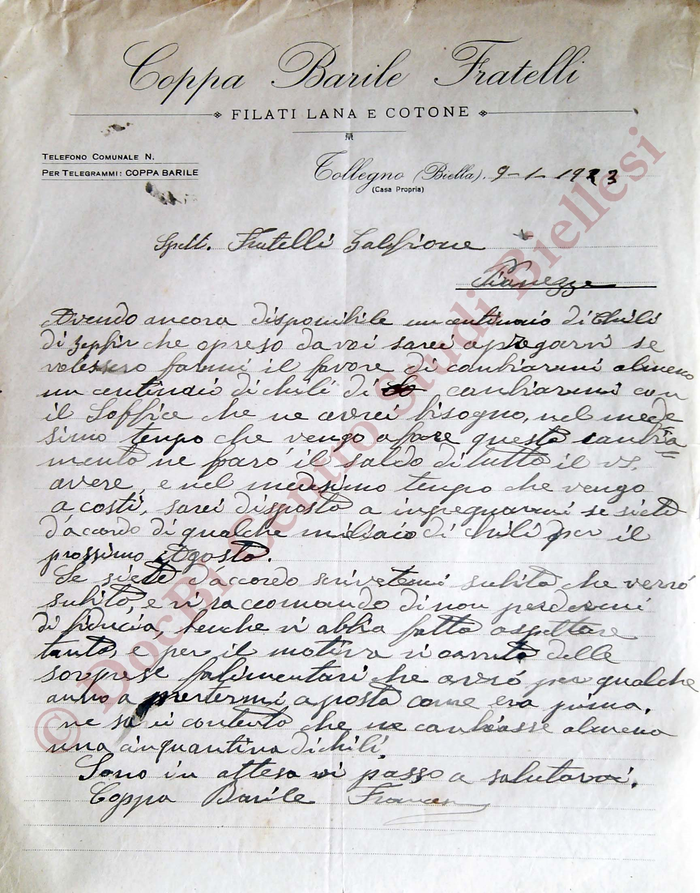 Coppa Barile Fratelli
FILATI LANA E COTONE
TELEFONO COMUNALE N.
PER TELEGRAMMI: COPPA BARILE
Tollegno (Biella), 9-1-1923
(Casa Propria)
Spett. Fratelli
Pianezze
Avendo ancora disponibile un centinaio di chili
di zeffir che o preso da voi sarei a pregarvi se
volessivo farmi il favore di cambiarmi almeno
un centinaio di chili di cambiarmi con
il Soffice che ne averei bisogno, nel mede
simo tempo che vengo a fare questo cambia=
mento ne farò il saldo di tutto il vs.
avere e nel medesimo tempo che vengo
a costi, sarei disposto a impegnarmi se siete
d'acordo di qualche migliaio di chili per il
prossimo Agosto.
Se siete d'accordo scrivetemi subito che verrò
subito, e vi raccomando di non perdermi
di fiducia, benche vi abbia fatto aspettare
tanto, e per il motivo vi delle
sorprese che avrò per qualche
anno a mettermi a posto come era prima,
ne sarei contento che ne cambiasse almeno
una cinquantina di chili.
Sono in attesa vi passo a salutarvi.
Coppa Barile
© DocBi Centro Studi Biellesi